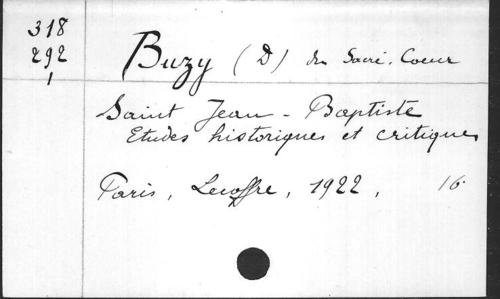 318
292
1
Buzy (D) du Sacré. Coeur
Saint Jean - Baptiste
Etudes historiques et critiques
Paris, Lecoffre, 1922, 16.